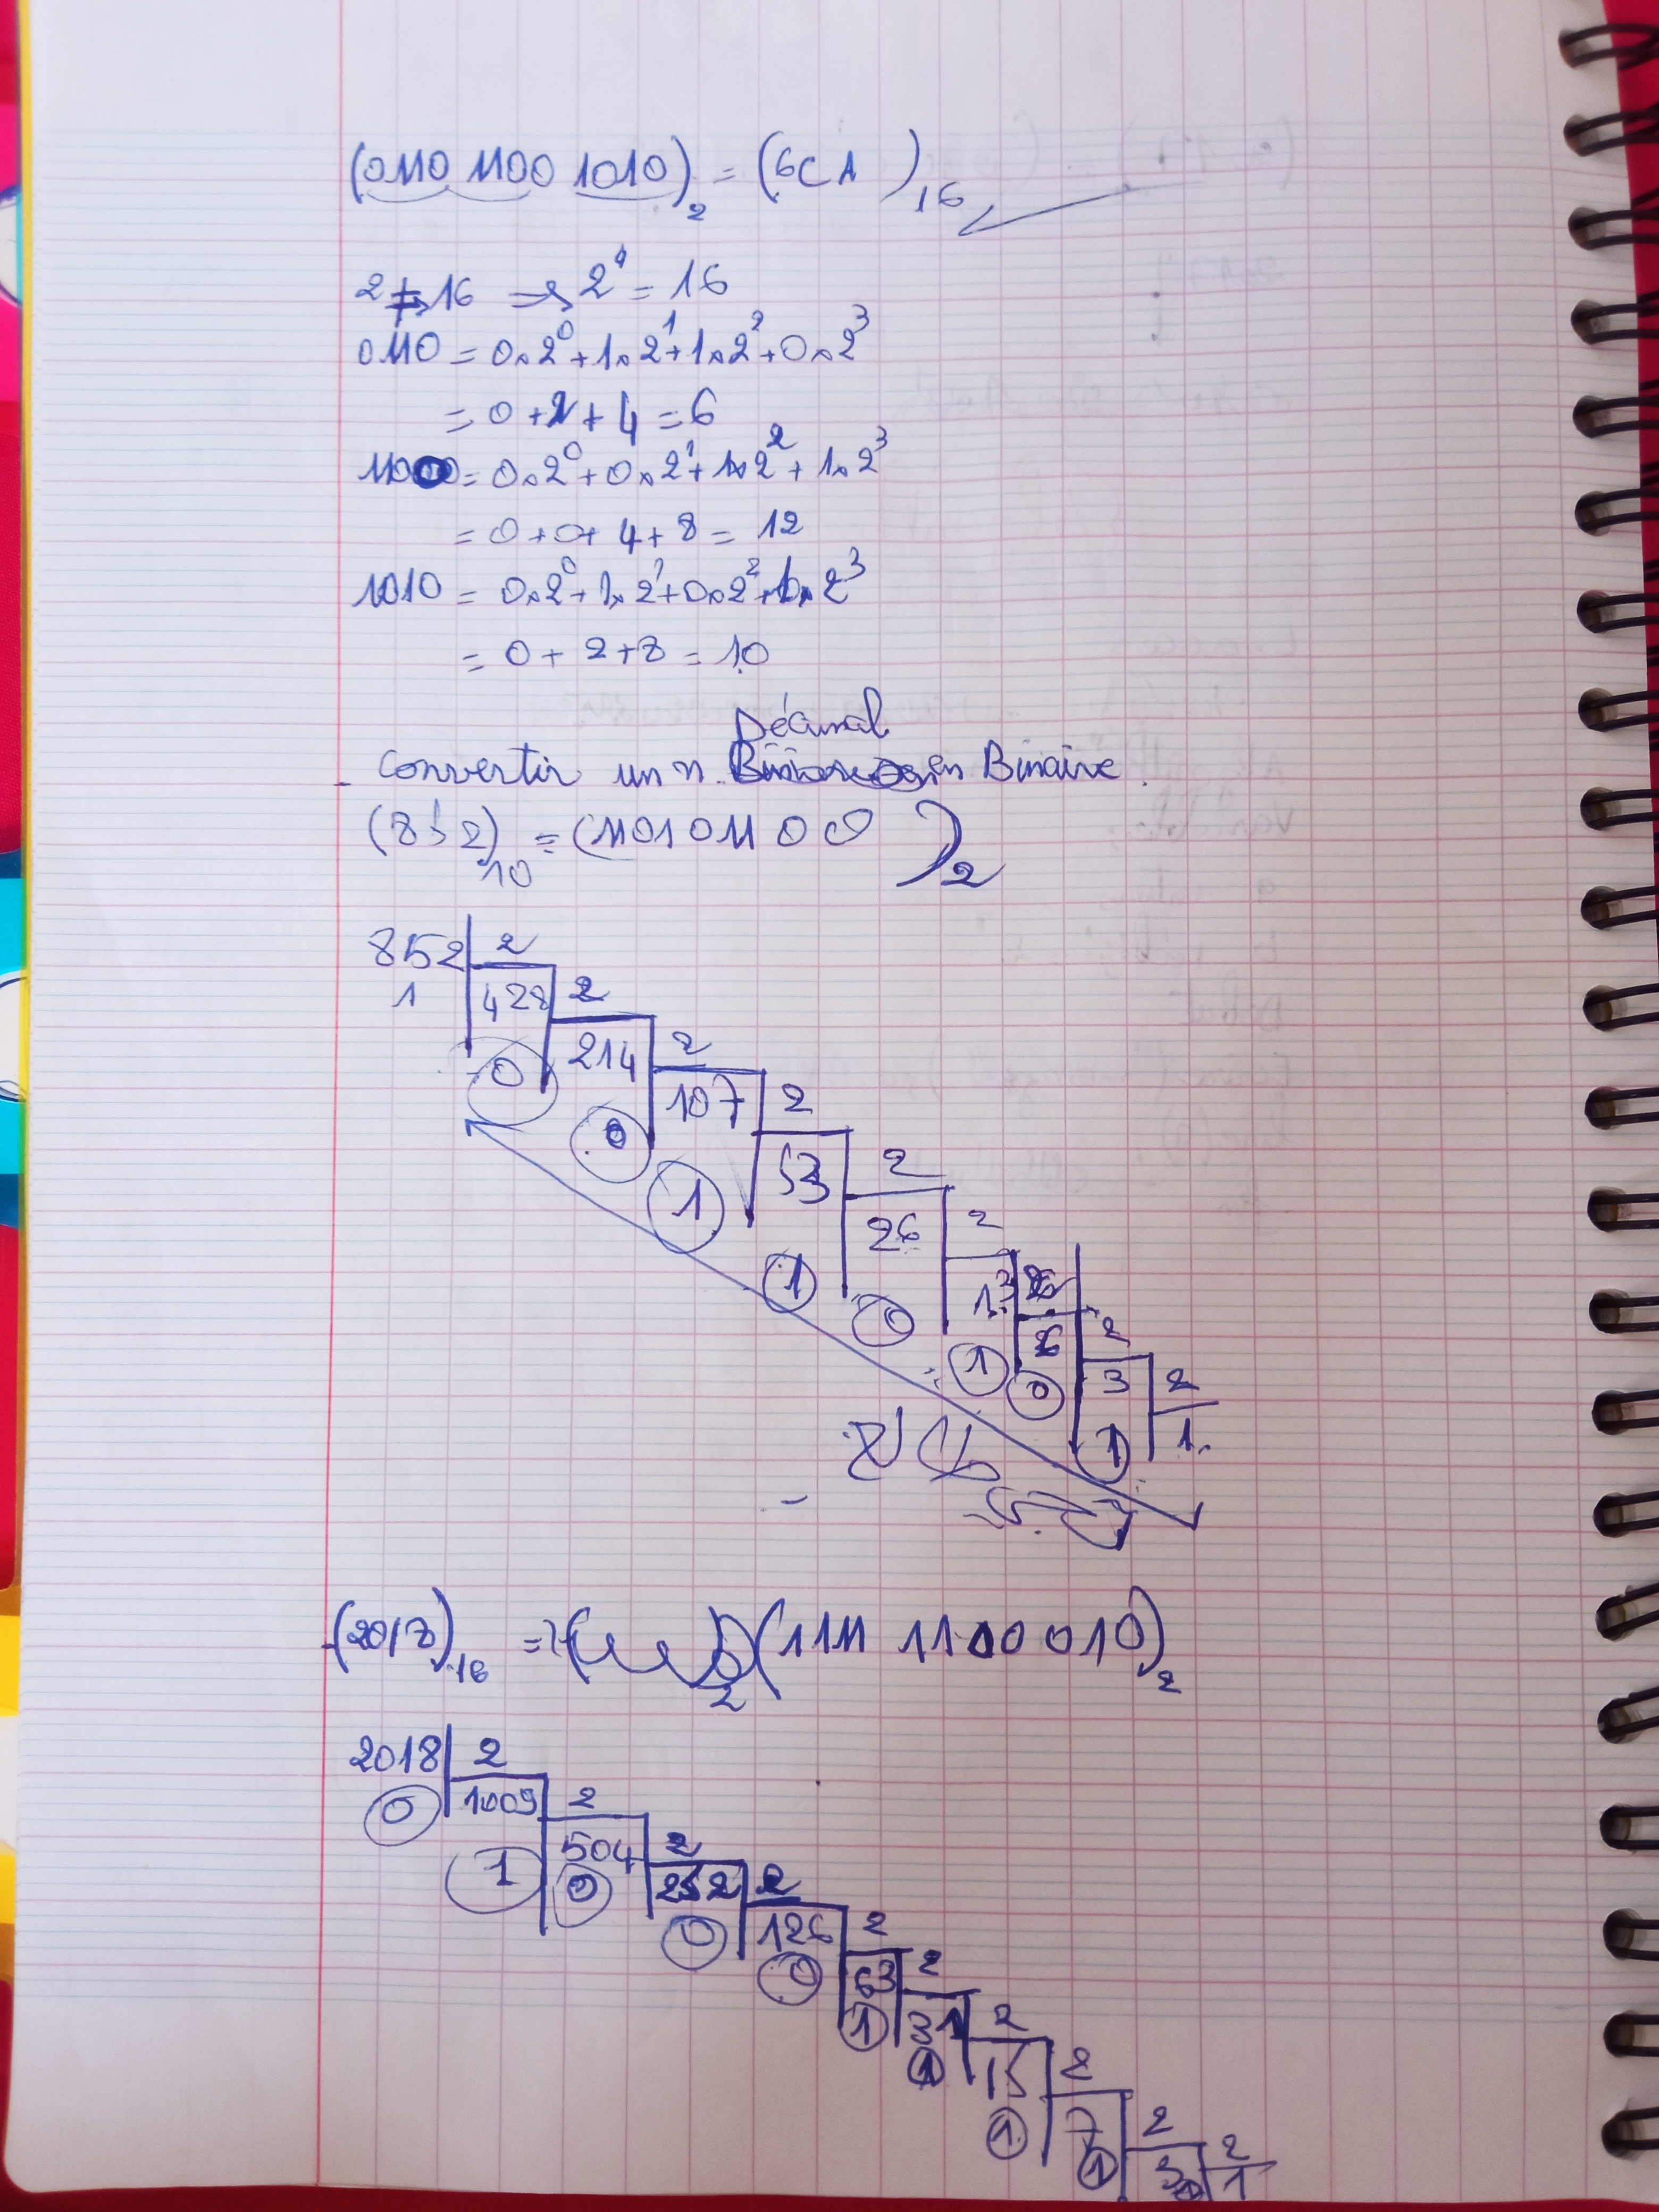 (0110 1100 1010)₂ = (6CA)₁₆
2 → 16 ⇒ 2⁴ = 16
0110 = 0×2⁰ + 1×2¹ + 1×2² + 0×2³
= 0 + 2 + 4 = 6
1100 = 0×2⁰ + 0×2¹ + 1×2² + 1×2³
= 0 + 0 + 4 + 8 = 12
1010 = 0×2⁰ + 1×2¹ + 0×2² + 1×2³
= 0 + 2 + 8 = 10
Décimal
- Convertir un n. en Binaire.
(852)₁₀ = (110101100)₂
852 2
1 428 2
0 214 2
0 107 2
1 53 2
1 26 2
0 13
1 6 2
0 3 2
1 1
(2018)₁₆ = (1111 1100 010)₂
2018 2
0 1009 2
1 504 2
0 252 2
0 126 2
0 63 2
1 31 2
1 15 2
1 7 2
1 3 2
1